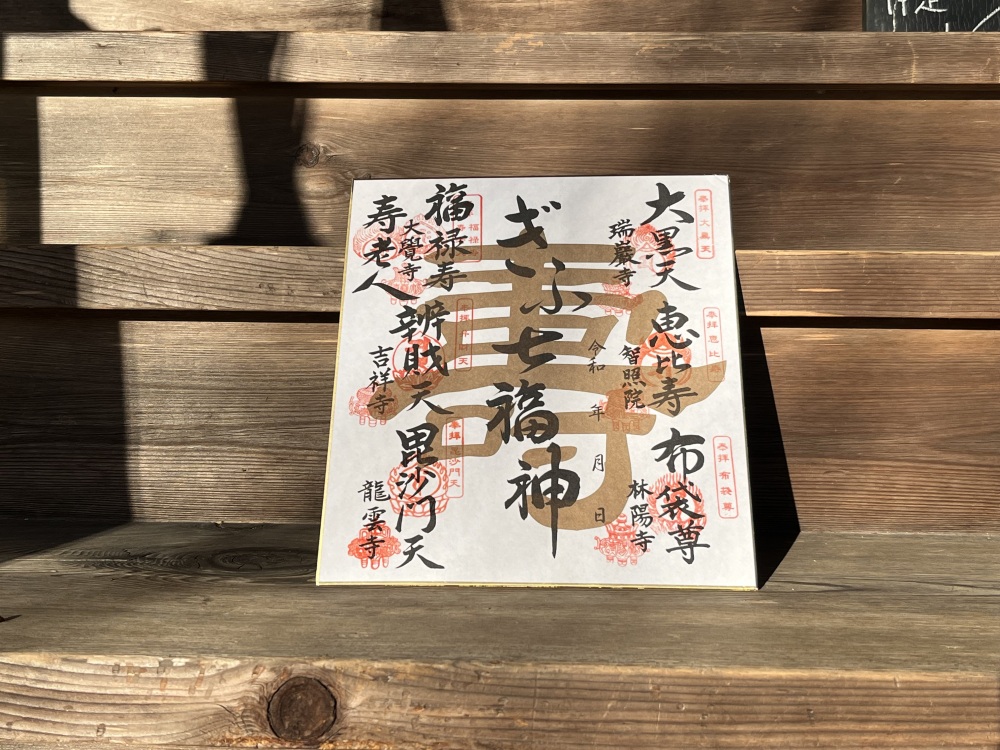 大黒天
瑞巖寺
恵比寿
智照院
布袋尊
林陽寺
令和 年 月 日
ぎふ七福神
福禄寿
大覺寺
寿老人
辨財天
吉祥寺
毘沙門天
龍雲寺
奉拝 大黒天
奉拝 恵比寿
奉拝 布袋尊
寿